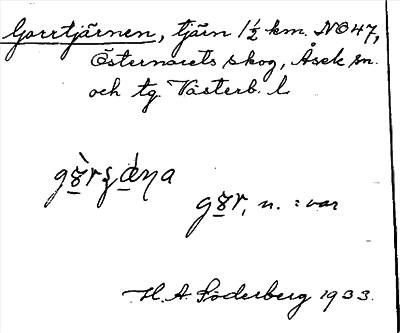 Gorrtjärnen, tjärn 1½ km. NO 47,
Östernorets skog, Åsele sn.
och tg. Västerb. l.
gɤr, n. : var
H. A. Söderberg 1933.